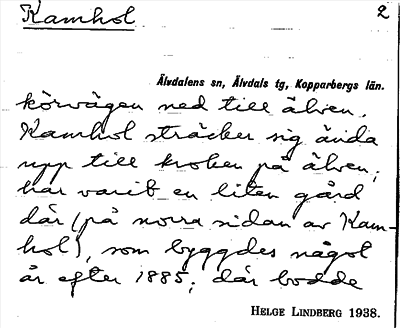 Kamhol 2
Älvdalens sn, Älvdals tg, Kopparbergs län.
körvägen ned till älven.
Kamhol sträcker sig ända
upp till kroken på älven;
har varit en liten gård
där (på norra sidan av Kam-
hol), som byggdes något
år efter 1885; där bodde
HELGE LINDBERG 1938.